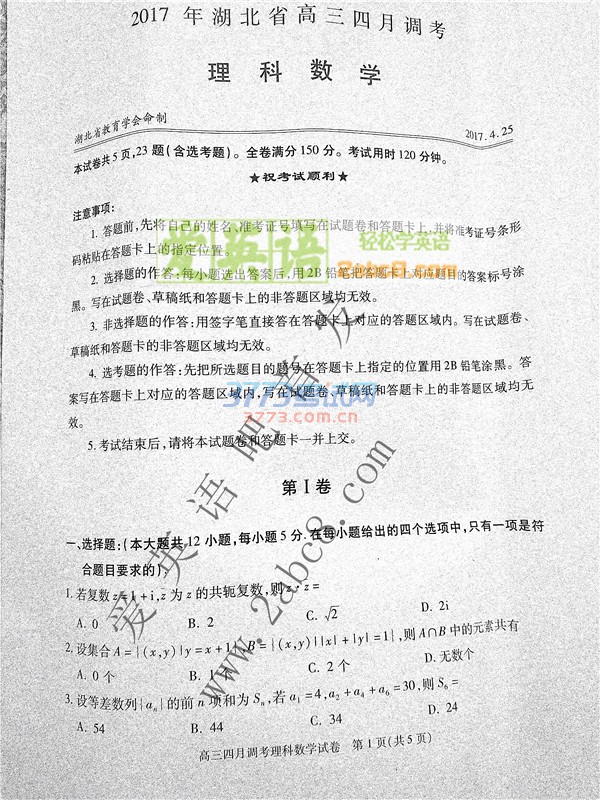 2017 年湖北省高三四月调考
理科数学
湖北省教育学会命制
2017.4.25
本试卷共5页,23题(含选考题)。全卷满分150分。考试用时120分钟。
★祝考试顺利★
注意事项:
1. 答题前,先将自己的姓名、准考证号填写在试题卷和答题卡上,并将准考证号条形
码粘贴在答题卡上的指定位置。
爱英语吧
轻松学英语
2abc8.com
2. 选择题的作答:每小题选出答案后,用2B铅笔把答题卡上对应题目的答案标号涂
黑。写在试题卷、草稿纸和答题卡上的非答题区域均无效。
3. 非选择题的作答:用签字笔直接答在答题卡上对应的答题区域内。写在试题卷、
草稿纸和答题卡的非答题区域均无效。
4. 选考题的作答:先把所选题目的题号在答题卡上指定的位置用2B铅笔涂黑。答
案写在答题卡上对应的答题区域内,写在试题卷、草稿纸和答题卡上的非答题区域均无
效。
3773考试网
3773.com.cn
5.考试结束后,请将本试题卷和答题卡一并上交。
第Ⅰ卷
一、选择题:(本大题共12小题,每小题5分.在每小题给出的四个选项中,只有一项是符
合题目要求的)
1. 若复数z=1+i,z̄为z的共轭复数,则z·z̄=
A. 0 B. 2 C. √2 D. 2i
2. 设集合A={(x,y)|y=x+1},B={(x,y)||x|+|y|=1},则A∩B中的元素共有
A. 0个 B. 1个 C. 2个 D. 无数个
3. 设等差数列{aₙ}的前n项和为Sₙ,若a₁=4,a₂+a₄+a₆=30,则S₆=
A. 54 B. 44 C. 34 D. 24
高三四月调考理科数学试卷 第1页(共5页)
爱英语吧首发
www.2abc8.com